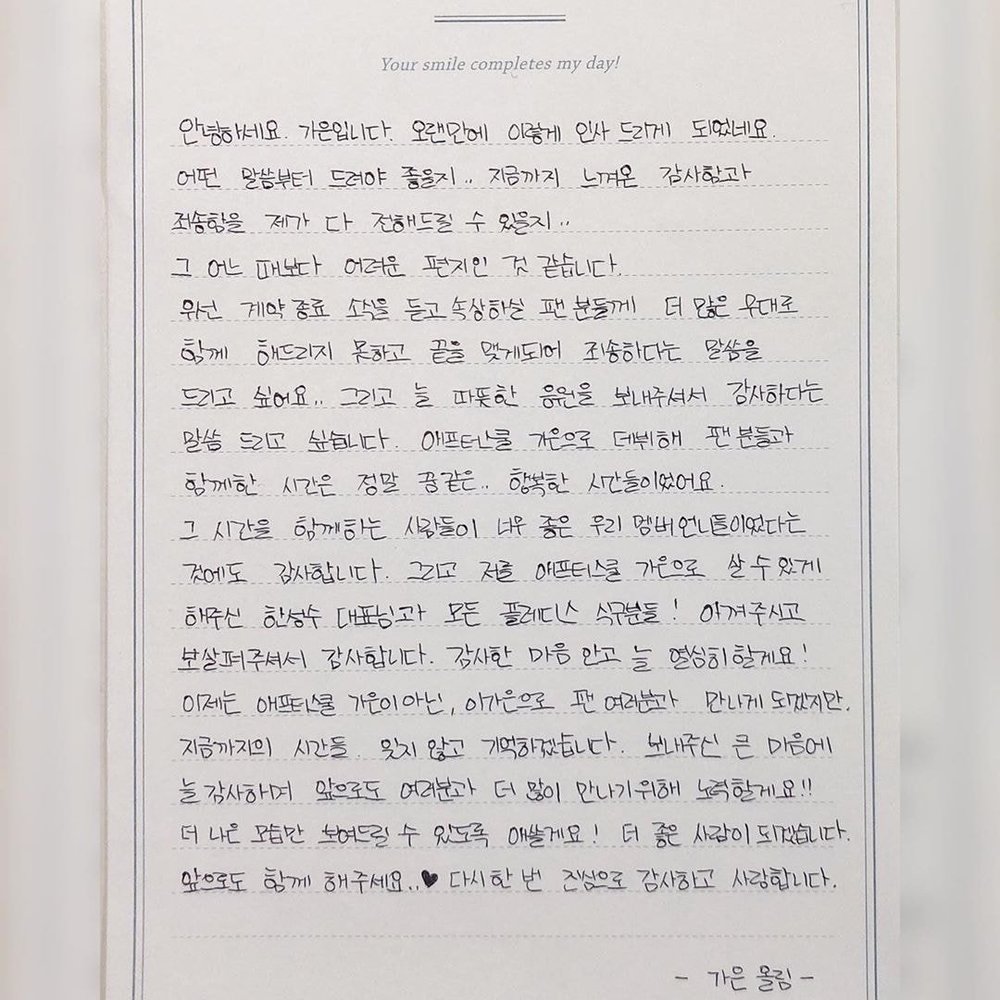 Your smile completes my day!
안녕하세요. 가은입니다. 오랜만에 이렇게 인사 드리게 되었네요.
어떤 말씀부터 드려야 좋을지.. 지금까지 느껴온 감사함과
죄송함을 제가 다 전해드릴 수 있을지..
그 어느 때보다 어려운 편지인 것 같습니다.
우선 계약 종료 소식을 듣고 속상하실 팬 분들께 더 많은 무대로
함께 해드리지 못하고 끝을 맺게되어 죄송하다는 말씀을
드리고 싶어요.. 그리고 늘 따뜻한 응원을 보내주셔서 감사하다는
말씀 드리고 싶습니다. 애프터스쿨 가은으로 데뷔해 팬 분들과
함께한 시간은 정말 꿈같은.. 행복한 시간들이었어요.
그 시간을 함께하는 사람들이 너무 좋은 우리 멤버 언니들이었다는
것에도 감사합니다. 그리고 저를 애프터스쿨 가은으로 살 수 있게
해주신 한성수 대표님과 모든 플레디스 식구분들! 아껴주시고
보살펴주셔서 감사합니다. 감사한 마음 안고 늘 열심히할게요!
이제는 애프터스쿨 가은이 아닌, 이가은으로 팬 여러분과 만나게 되겠지만.
지금까지의 시간들. 잊지 않고 기억하겠습니다. 보내주신 큰 마음에
늘 감사하며 앞으로도 여러분과 더 많이 만나기위해 노력할게요!!
더 나은 모습만 보여드릴 수 있도록 애쓸게요! 더 좋은 사람이 되겠습니다.
앞으로도 함께 해주세요..♥ 다시한번 진심으로 감사하고 사랑합니다.
- 가은 올림 -